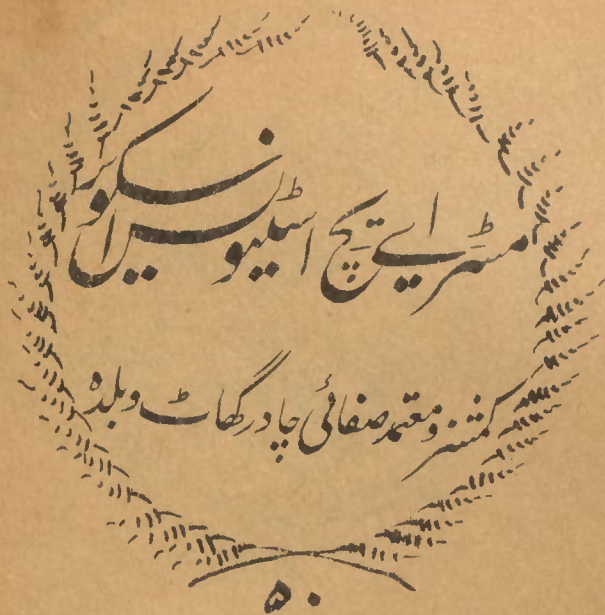 مسٹر اے ایچ اسٹیونس اسکوئر
کمشنر و معتمد صفائی چادر گھاٹ و بلدہ
۵۰